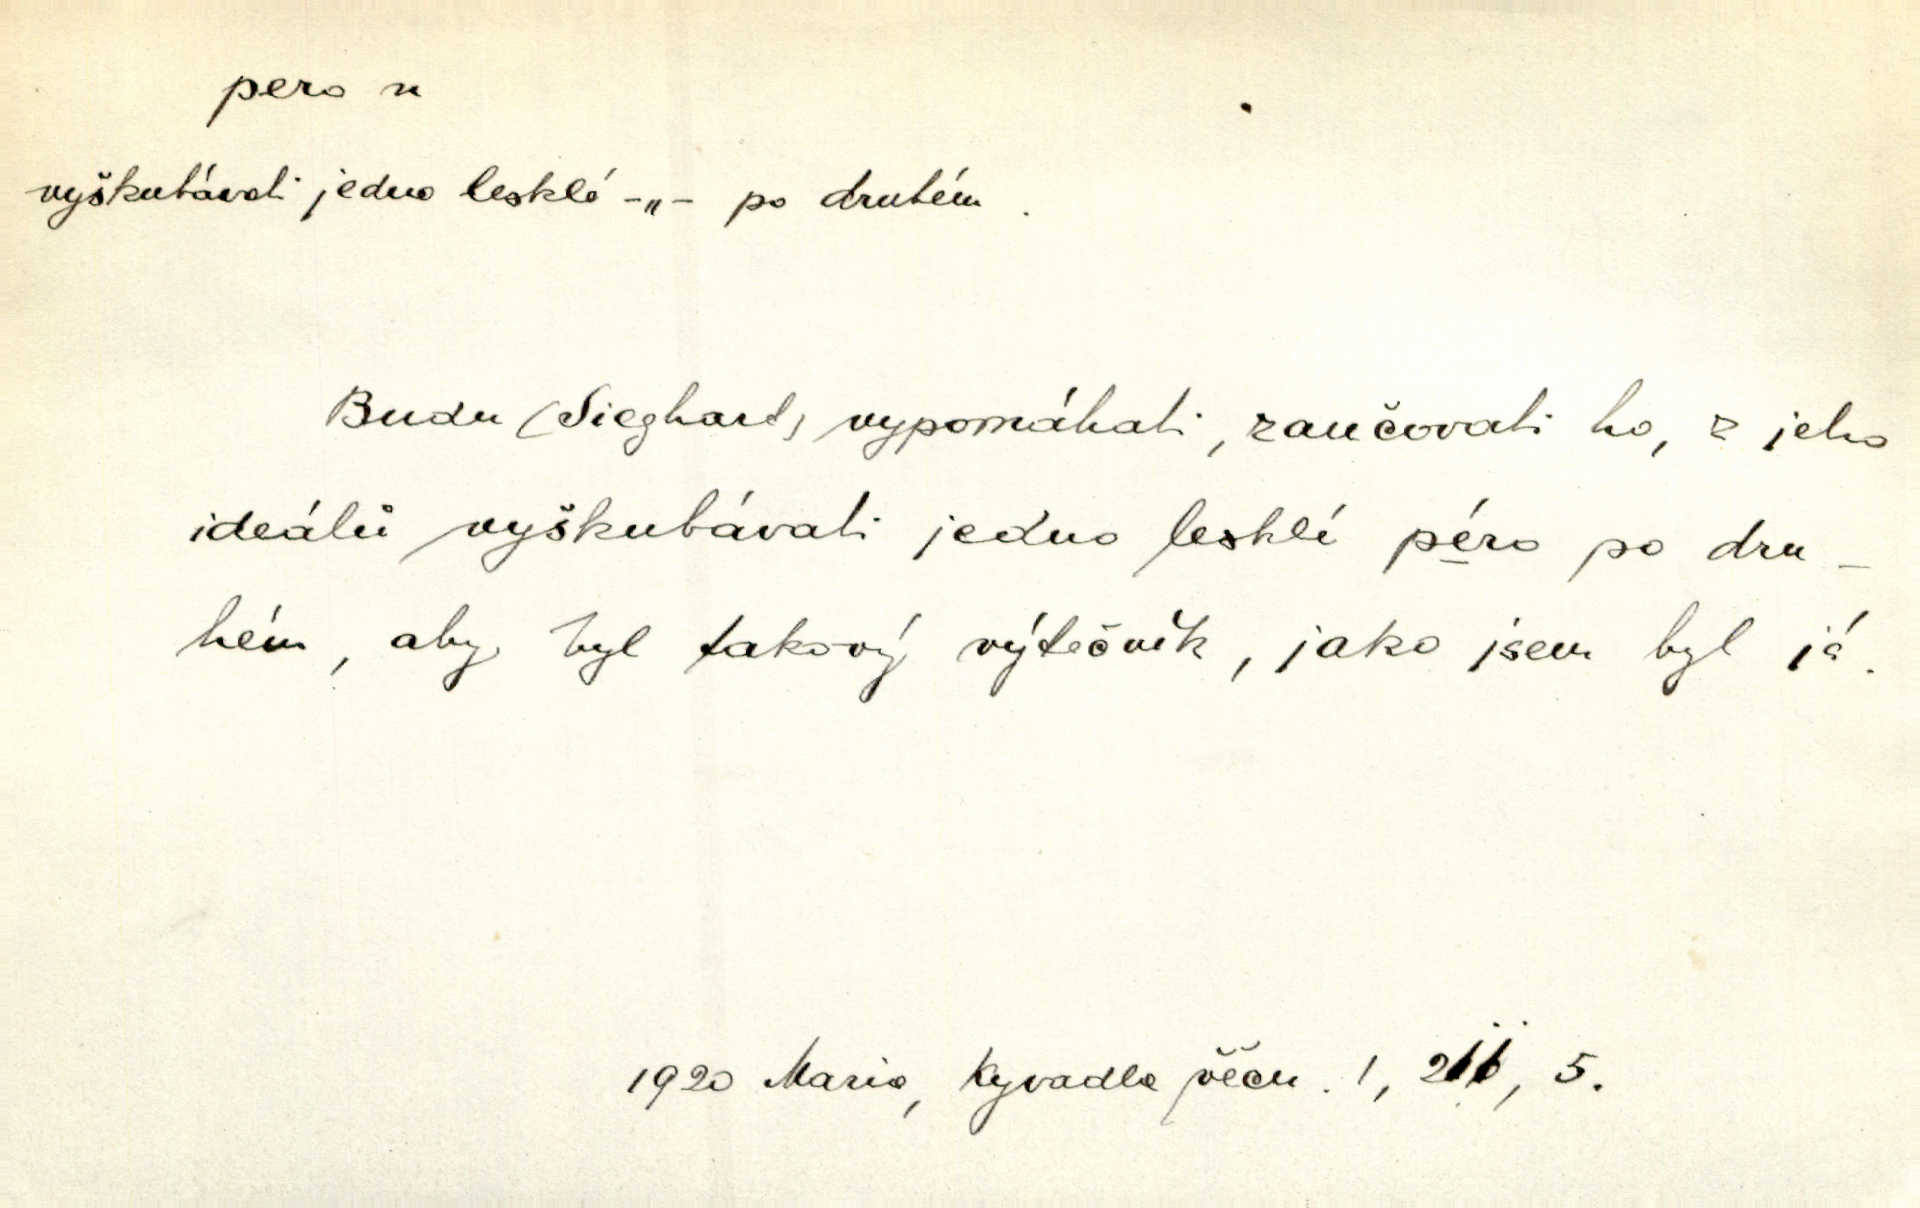 pero n
vyškubávati jedno lesklé -„- po druhém.
Budu (Sieghart) vypomáhati, zaučovati ho, z jeho
ideálů vyškubávati jedno lesklé péro po dru-
hém, aby byl takový výtečník, jako jsem byl já.
1920 Maria, Kyvadlo věčn. 1, 5.